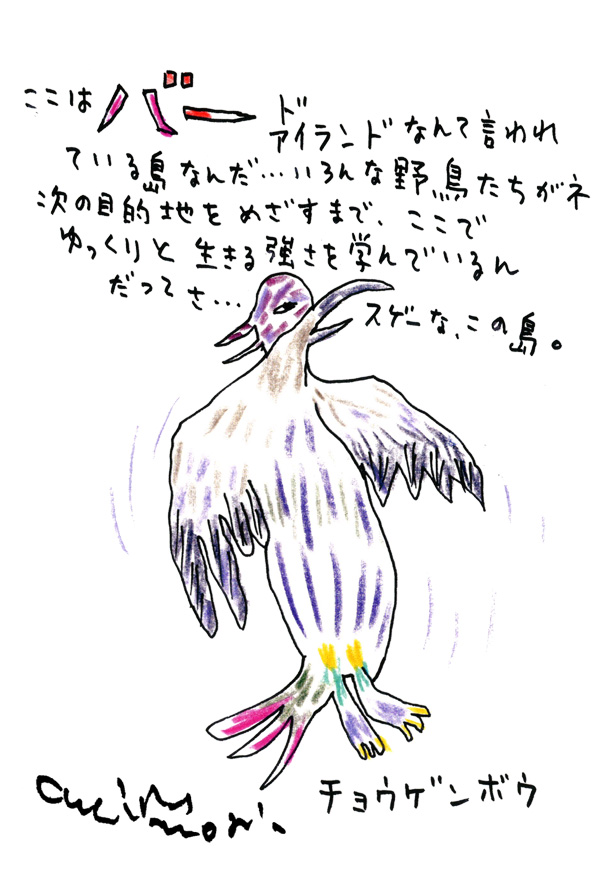 ここは バード
アイランドなんて言われ
ている島なんだ…いろんな野鳥たちがネ
次の目的地をめざすまで、ここで
ゆっくりと生きる強さを学んでいるん
だってさ…
スゲーな、この島。
チョウゲンボウ